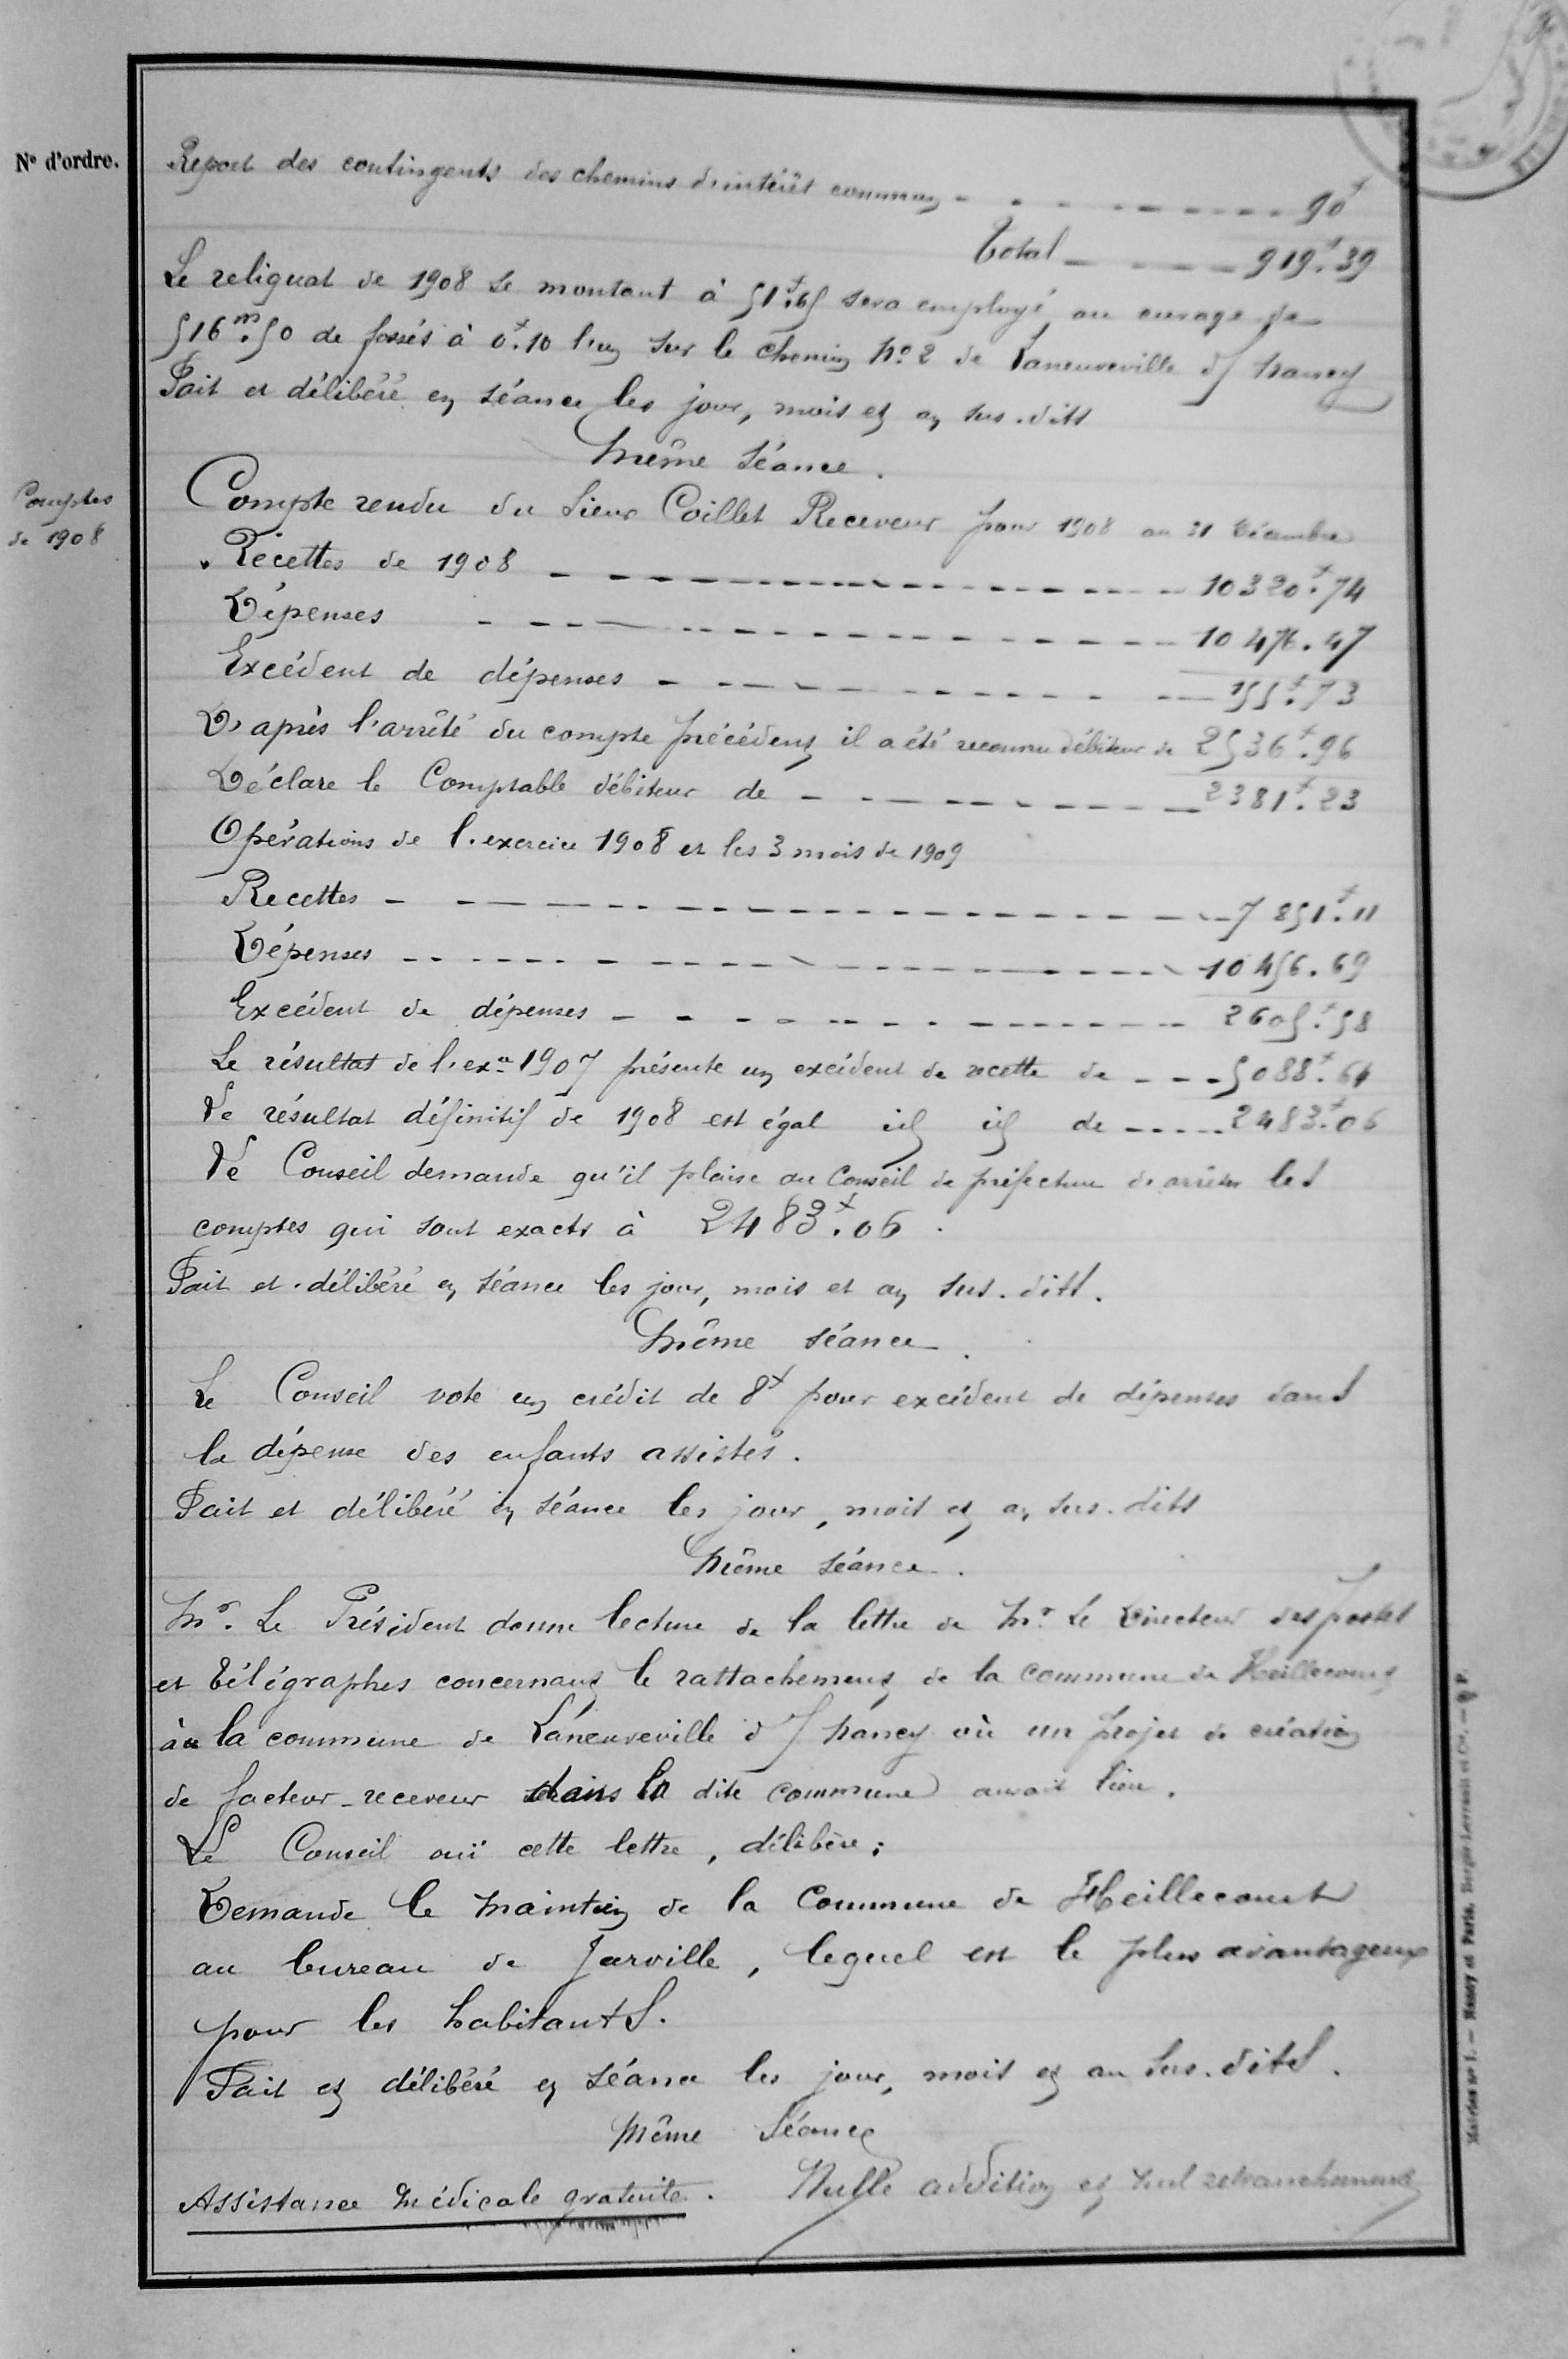 N° d'ordre.
Report des contingents des chemins d'intérêt commun - - - - - - - 90f
Total - - - - 919f.39
Le reliquat de 1908 se montant à 51f.65 sera employé au curage de
516m.50 de fossés à 0f.10 l'un sur le chemin No 2 de Laneuveville d/ Nancy
Fait et délibéré en séance les jour, mois et an sus-dits
Même séance.
Comptes
de 1908
Compte rendu du Sieur Coillet Receveur pour 1908 au 31 Décembre
Recettes de 1908 - - - - - - - 10320f.74
Dépenses - - - - - - - 10476.47
Excédent de dépenses - - - - - - - 155f.73
D'après l'arrêté du compte précédent il a été reconnu débiteur de 2536f.96
Déclare le Comptable débiteur de - - - - - - - 2381f.23
Opérations de l'exercice 1908 et les 3 mois de 1909
Recettes - - - - - - - 7851f.11
Dépenses - - - - - - - 10456.69
Excédent de dépenses - - - - - - - 2605f.58
Le résultat de l'exce 1907 présente un excédent de recette de - - - 5088f.64
Le résultat définitif de 1908 est égal id id de - - - - - 2483f.06
Le Conseil demande qu'il plaise au Conseil de préfecture d'arrêter les
comptes qui sont exacts à 2483f.06.
Fait et délibéré en séance les jour, mois et an sus-dits.
Même séance.
Le Conseil vote un crédit de 8f pour excédent de dépenses dans
la dépense des enfants assistés.
Fait et délibéré en séance les jour, mois et an sus-dits
Même séance.
Mr. Le Président donne lecture de la lettre de Mr. Le Directeur des postes
et télégraphes concernant le rattachement de la commune de Heillecourt
à la commune de Laneuveville d/ Nancy où un projet de création
de facteur-receveur dans la dite commune aurait lieu.
Le Conseil ouï cette lettre, délibère;
Demande le maintien de la Commune de Heillecourt
au bureau de Jarville, lequel est le plus avantageux
pour les habitants.
Fait et délibéré en séance les jour, mois et an sus-dits.
Même Séance
Assistance médicale gratuite. Nulle addition et nul retranchement
Mairies no 1. — Nancy et Paris. Berger-Levrault et Cie. —